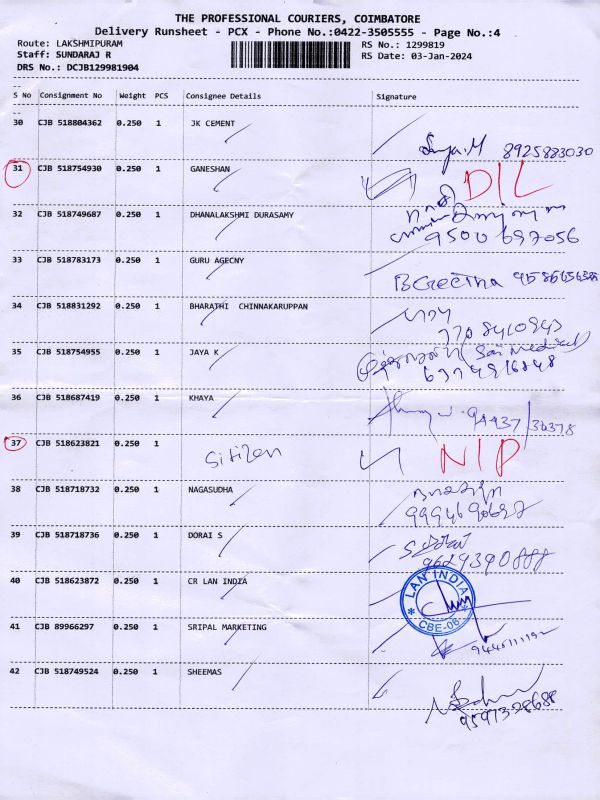 THE PROFESSIONAL COURIERS, COIMBATORE
Delivery Runsheet - PCX - Phone No.:0422-3505555 - Page No.:4
Route: LAKSHMIPURAM RS No.: 1299819
Staff: SUNDARAJ R RS Date: 03-Jan-2024
DRS No.: DCJB129981904
S No Consignment No Weight PCS Consignee Details Signature
30 CJB 518804362 0.250 1 JK CEMENT
8925883030
31 CJB 518754930 0.250 1 GANESHAN D/L
32 CJB 518749687 0.250 1 DHANALAKSHMI DURASAMY
9500697056
33 CJB 518783173 0.250 1 GURU AGECNY
BGeetha
34 CJB 518831292 0.250 1 BHARATHI CHINNAKARUPPAN
35 CJB 518754955 0.250 1 JAYA K
Sai Medical
6374916848
36 CJB 518687419 0.250 1 KHAYA
94437/36378
37 CJB 518623821 0.250 1 Sitizen N/P
38 CJB 518718732 0.250 1 NAGASUDHA
39 CJB 518718736 0.250 1 DORAI S
9629390888
40 CJB 518623872 0.250 1 CR LAN INDIA
LAN INDIA
CBE-06
41 CJB 89966297 0.250 1 SRIPAL MARKETING
42 CJB 518749524 0.250 1 SHEEMAS
9597328688